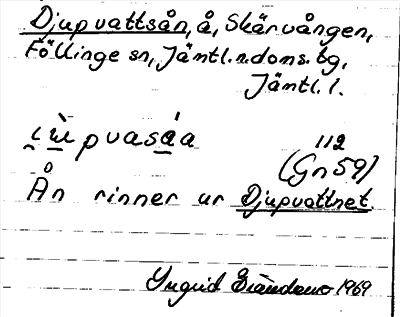 Djupvattsån, å, Skärvången,
Föllinge sn, Jämtl. n. doms. bg,
Jämtl. l.
112
(Gn 59)
Ån rinner ur Djupvattnet.
Yngrid 1969